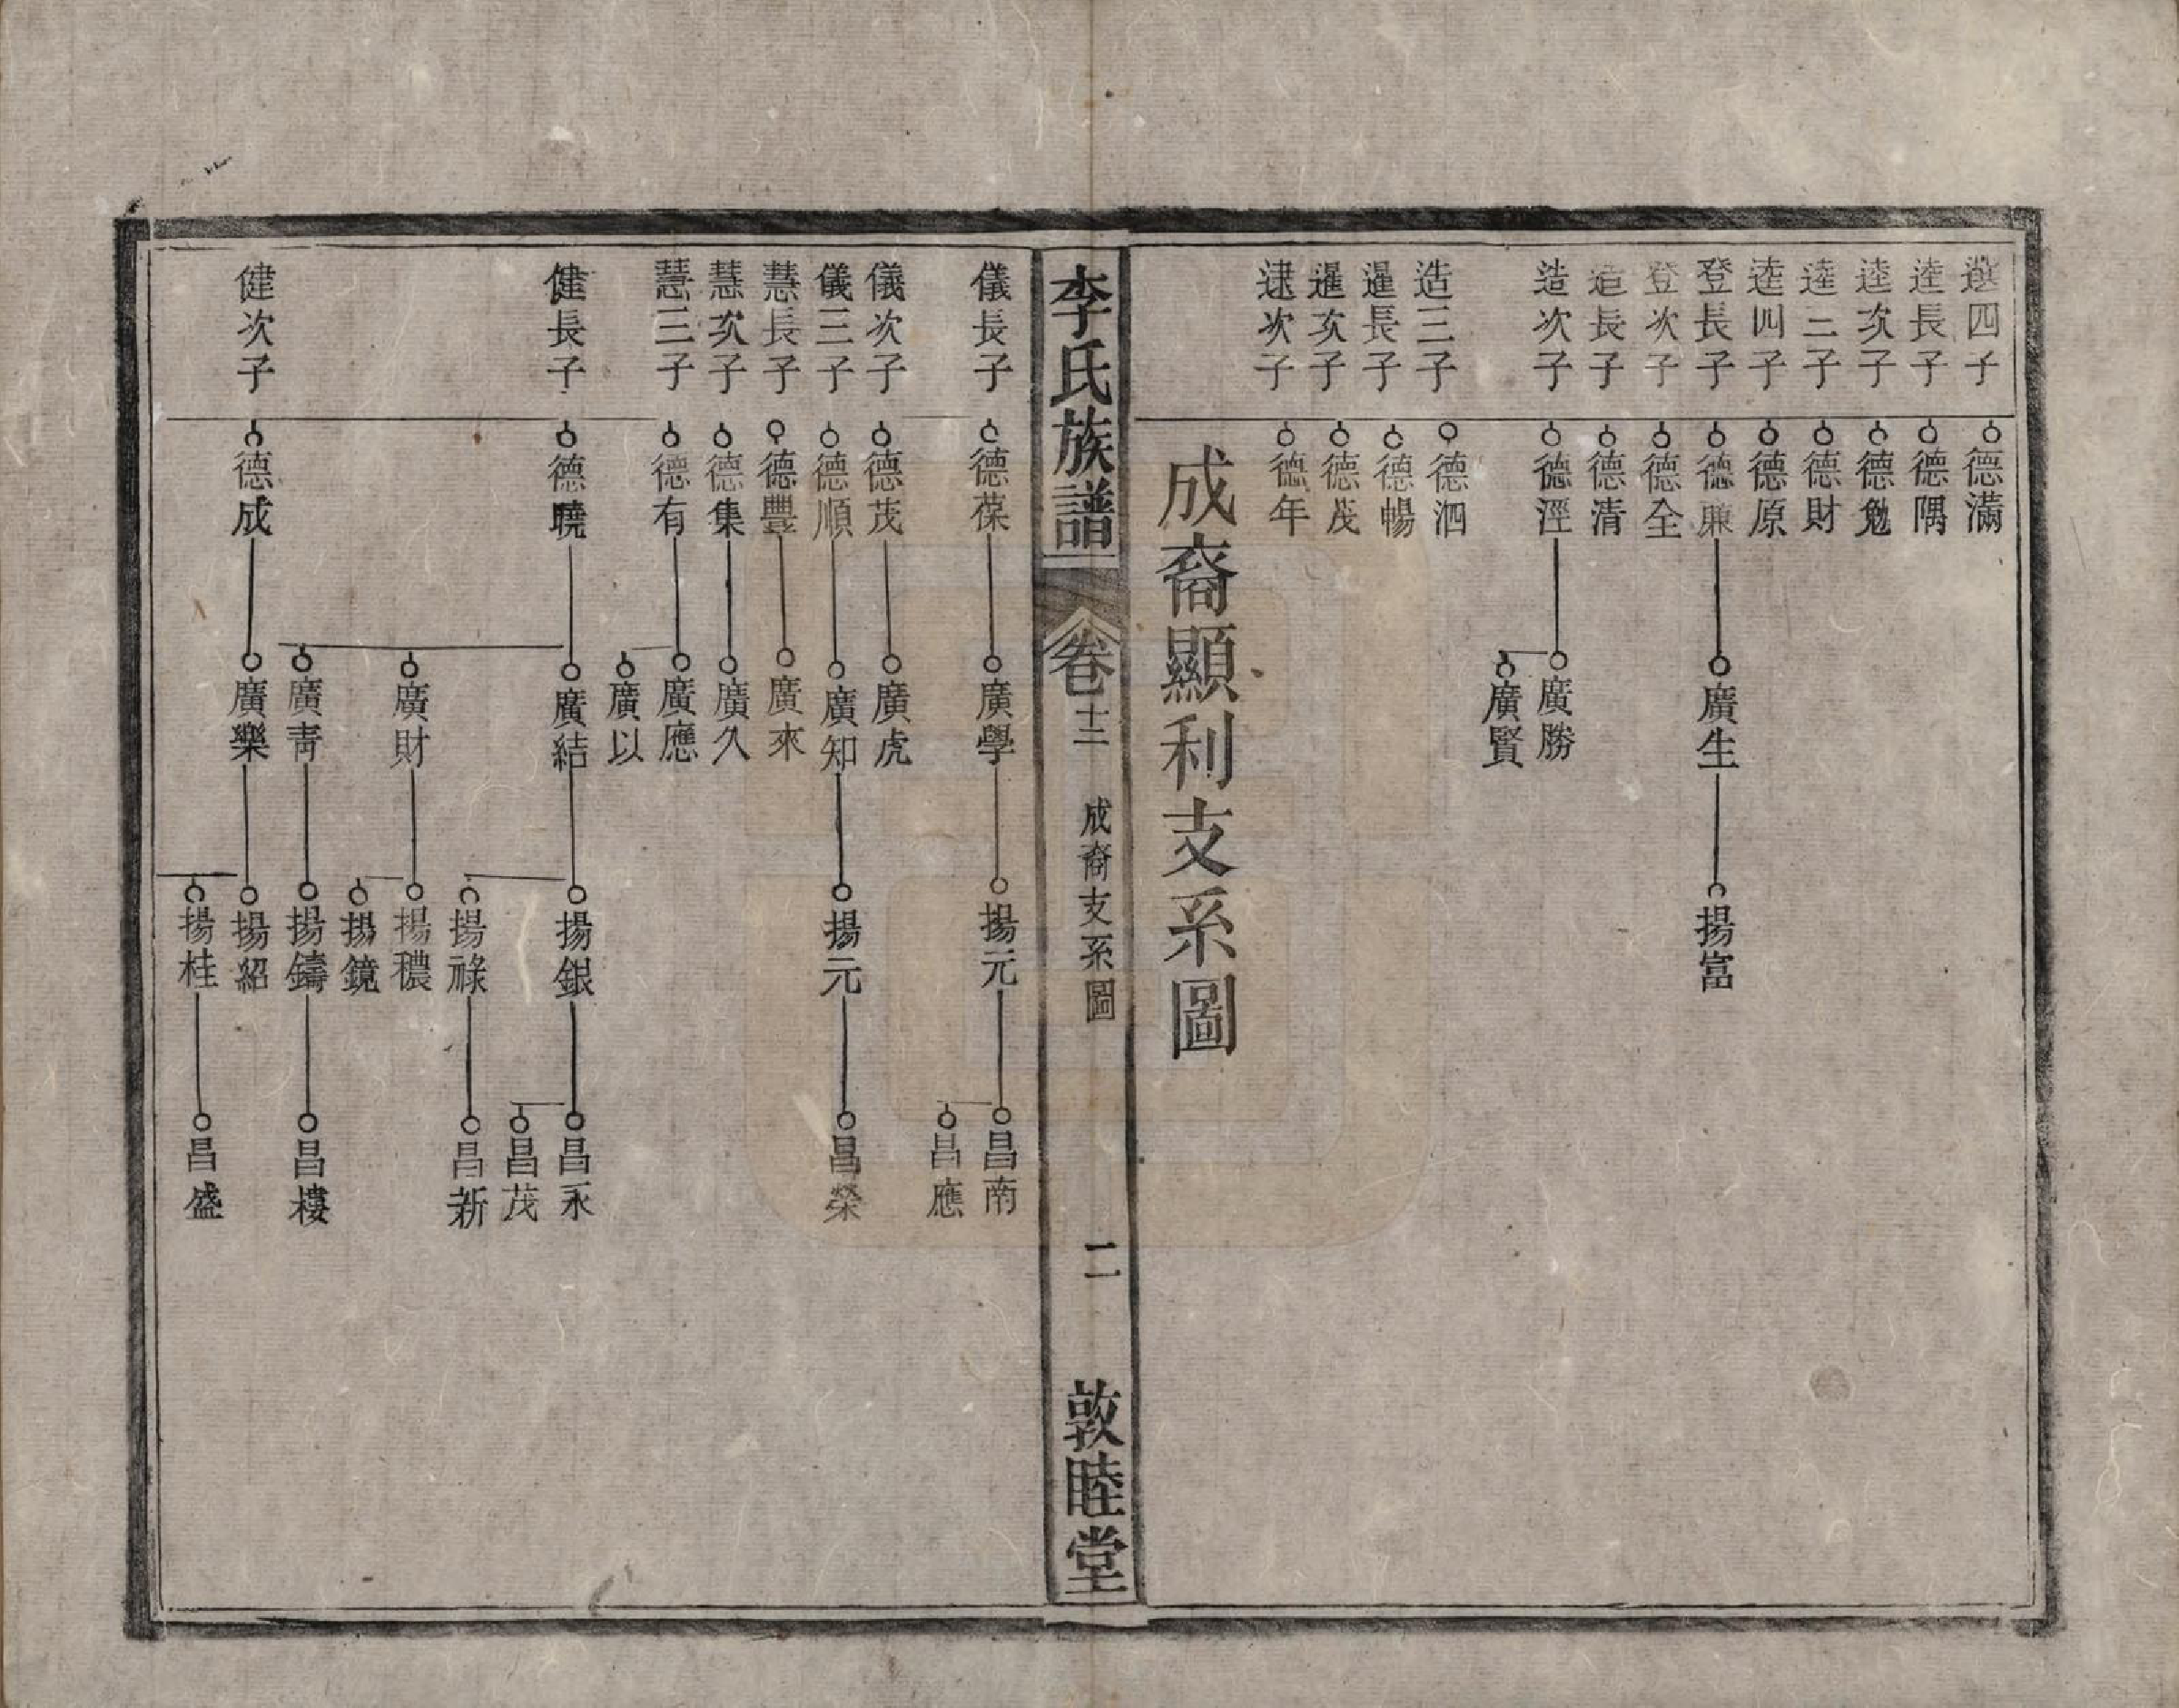 選四子 德滿
逵長子 德隅
逵次子 德勉
逵三子 德財
逵四子 德原
登長子 德廉 廣生 揚富
登次子 德全
造長子 德清
造次子 德涇 廣勝
廣賢
造三子 德泗
暹長子 德暢
暹次子 德茂
逮次子 德年
成裔顯利支系圖
李氏族譜 卷十二 成裔支系圖 二 敦睦堂
儀長子 德葆 廣學 揚元 昌南
昌應
儀次子 德茂 廣虎
儀三子 德順 廣知 揚元 昌榮
慧長子 德豐 廣來
慧次子 德集 廣久
慧三子 德有 廣應
廣以
健長子 德曉 廣結 揚銀 昌永
昌茂
揚祿 昌新
廣財 揚禯
揚鏡
廣青 揚鑄 昌樓
健次子 德成 廣樂 揚紹
揚桂 昌盛